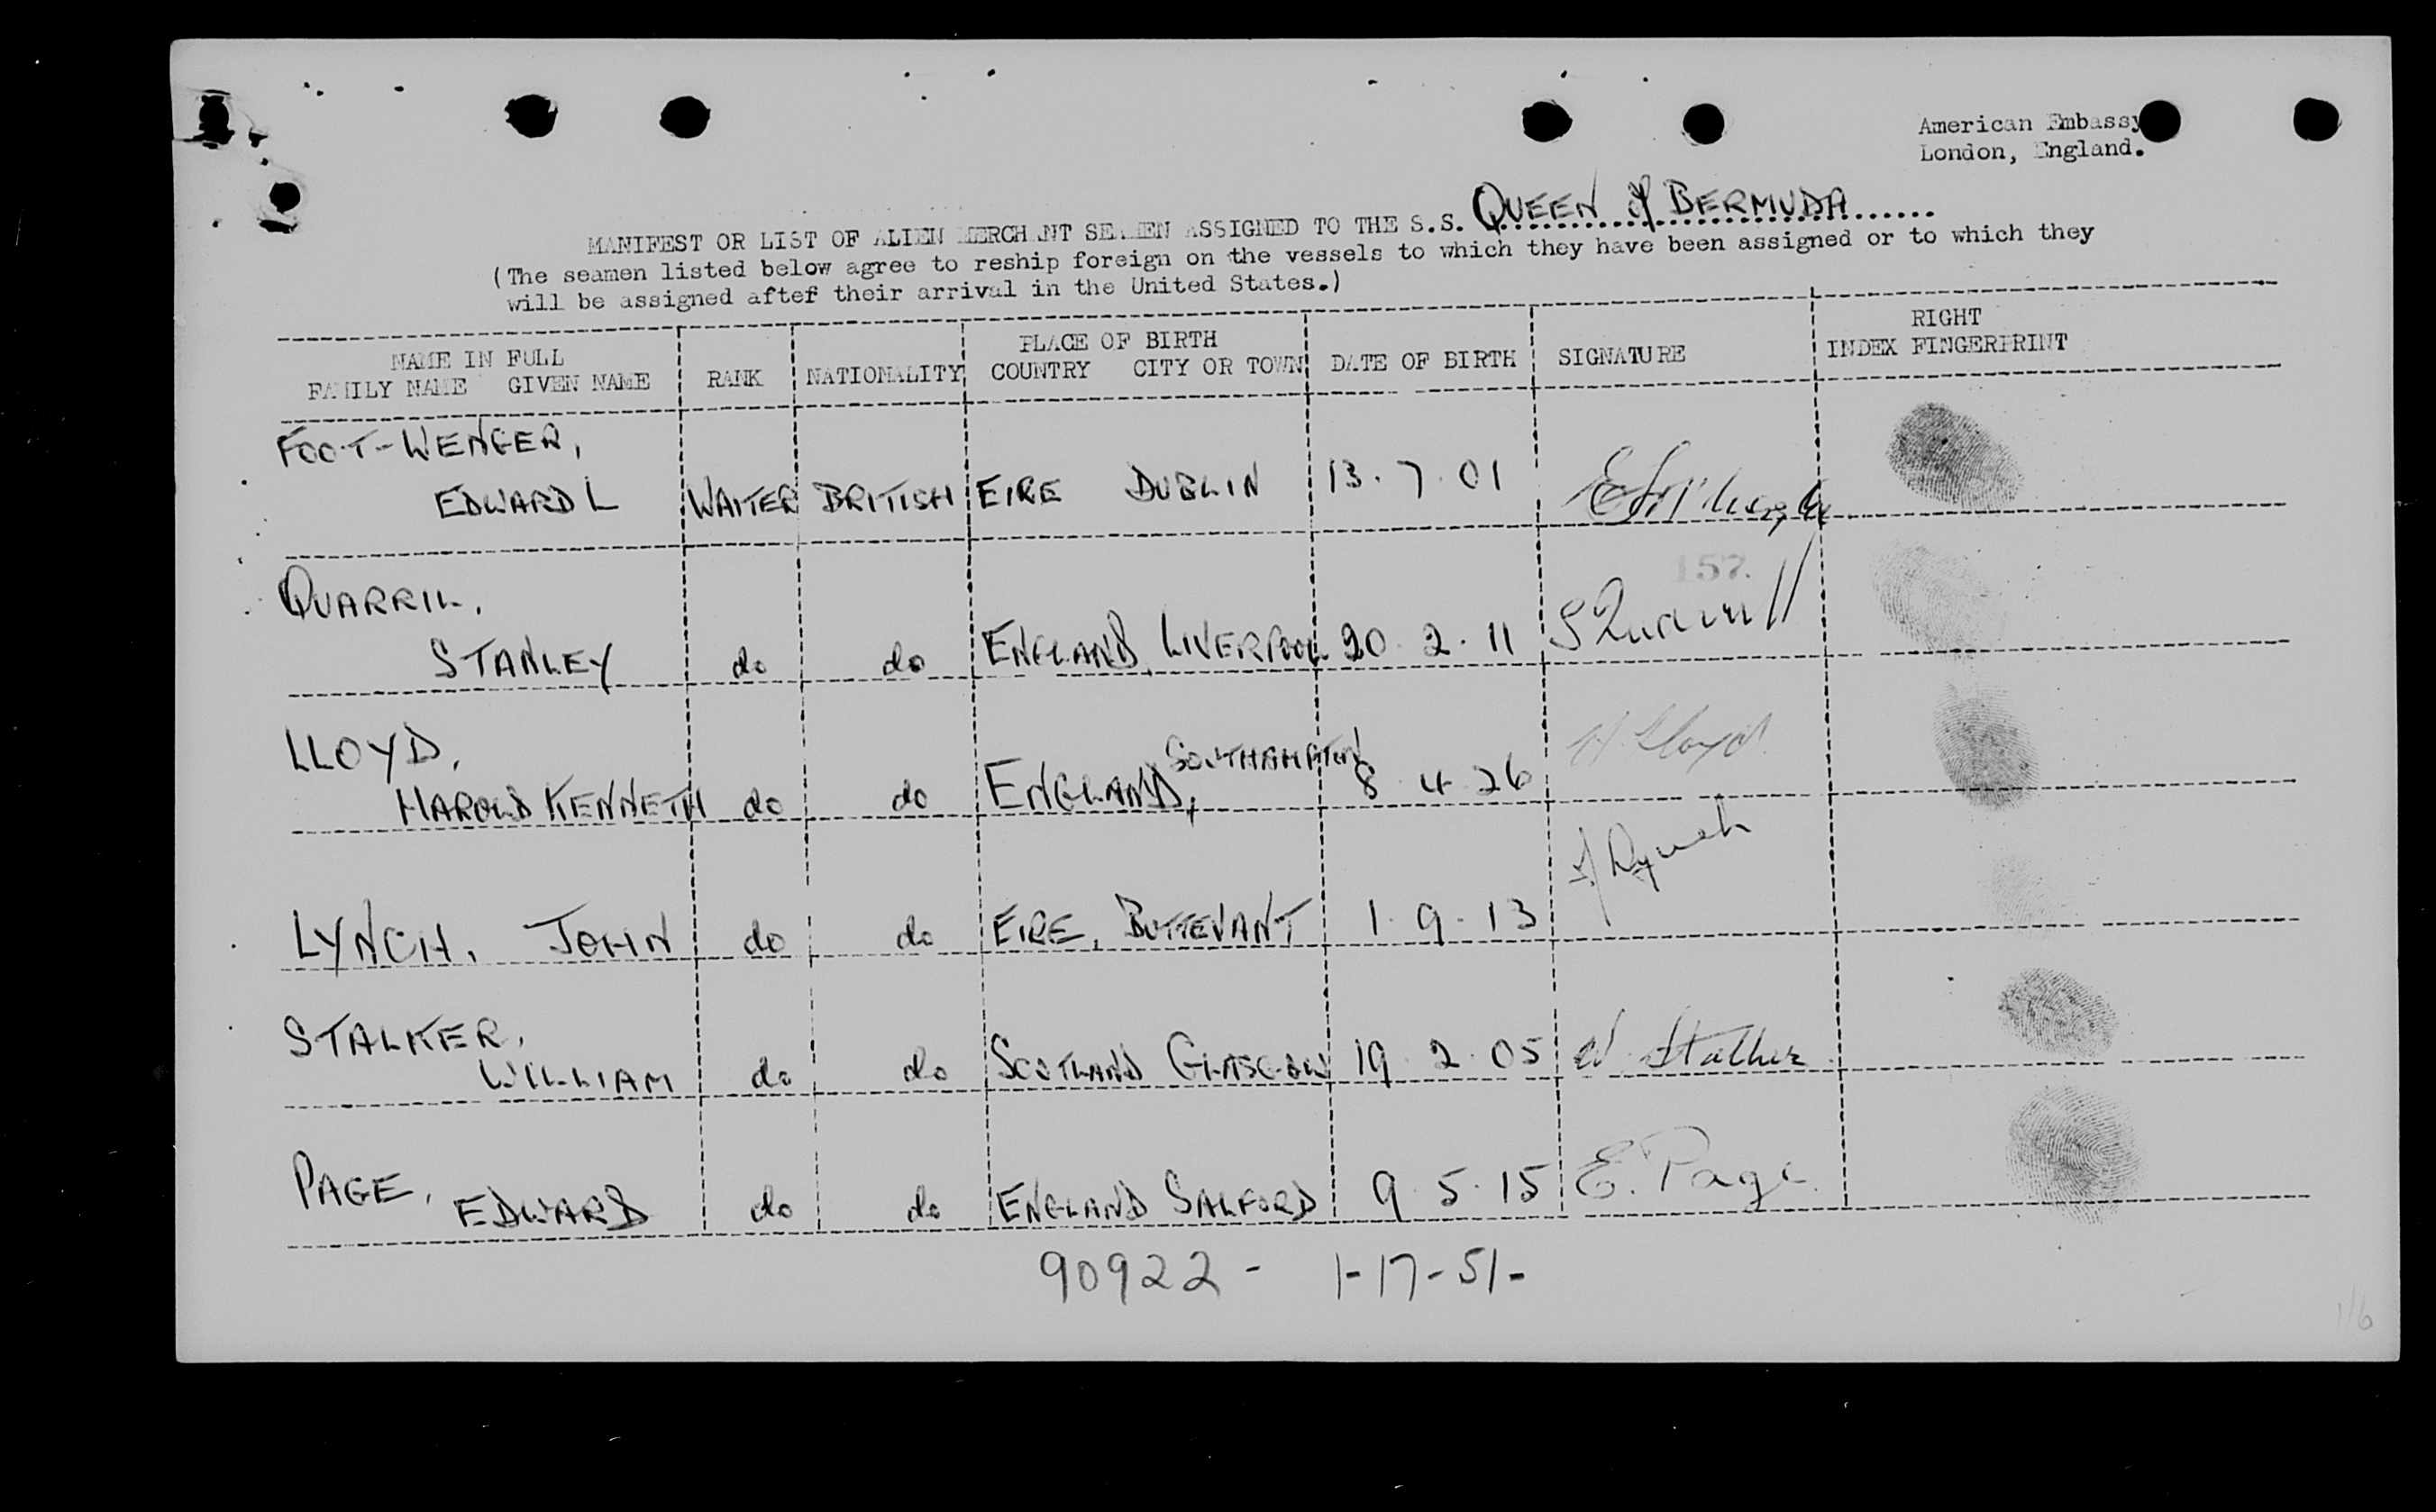 American Embassy
London, England.
MANIFEST OR LIST OF ALIEN MERCHANT SEAMEN ASSIGNED TO THE S.S. QUEEN of BERMUDA
(The seamen listed below agree to reship foreign on the vessels to which they have been assigned or to which they
will be assigned after their arrival in the United States.)
NAME IN FULL PLACE OF BIRTH RIGHT
FAMILY NAME GIVEN NAME RANK NATIONALITY COUNTRY CITY OR TOWN DATE OF BIRTH SIGNATURE INDEX FINGERPRINT
FOOT-WENGER,
EDWARD L WAITER BRITISH EIRE DUBLIN 13.7.01
157.
QUARRIL,
STANLEY do do ENGLAND, LIVERPOOL 20.2.11 S Quarrill
LLOYD,
HAROLD KENNETH do do ENGLAND, SOUTHAMPTON 8 4 26 H Lloyd
LYNCH, JOHN do do EIRE, BUTTEVANT 1.9.13 J Lynch
STALKER,
WILLIAM do do SCOTLAND GLASGOW 19.2.05 W Stalker
PAGE,
EDWARD do do ENGLAND SALFORD 9.5.15 E. Page
90922 - 1-17-51-
116